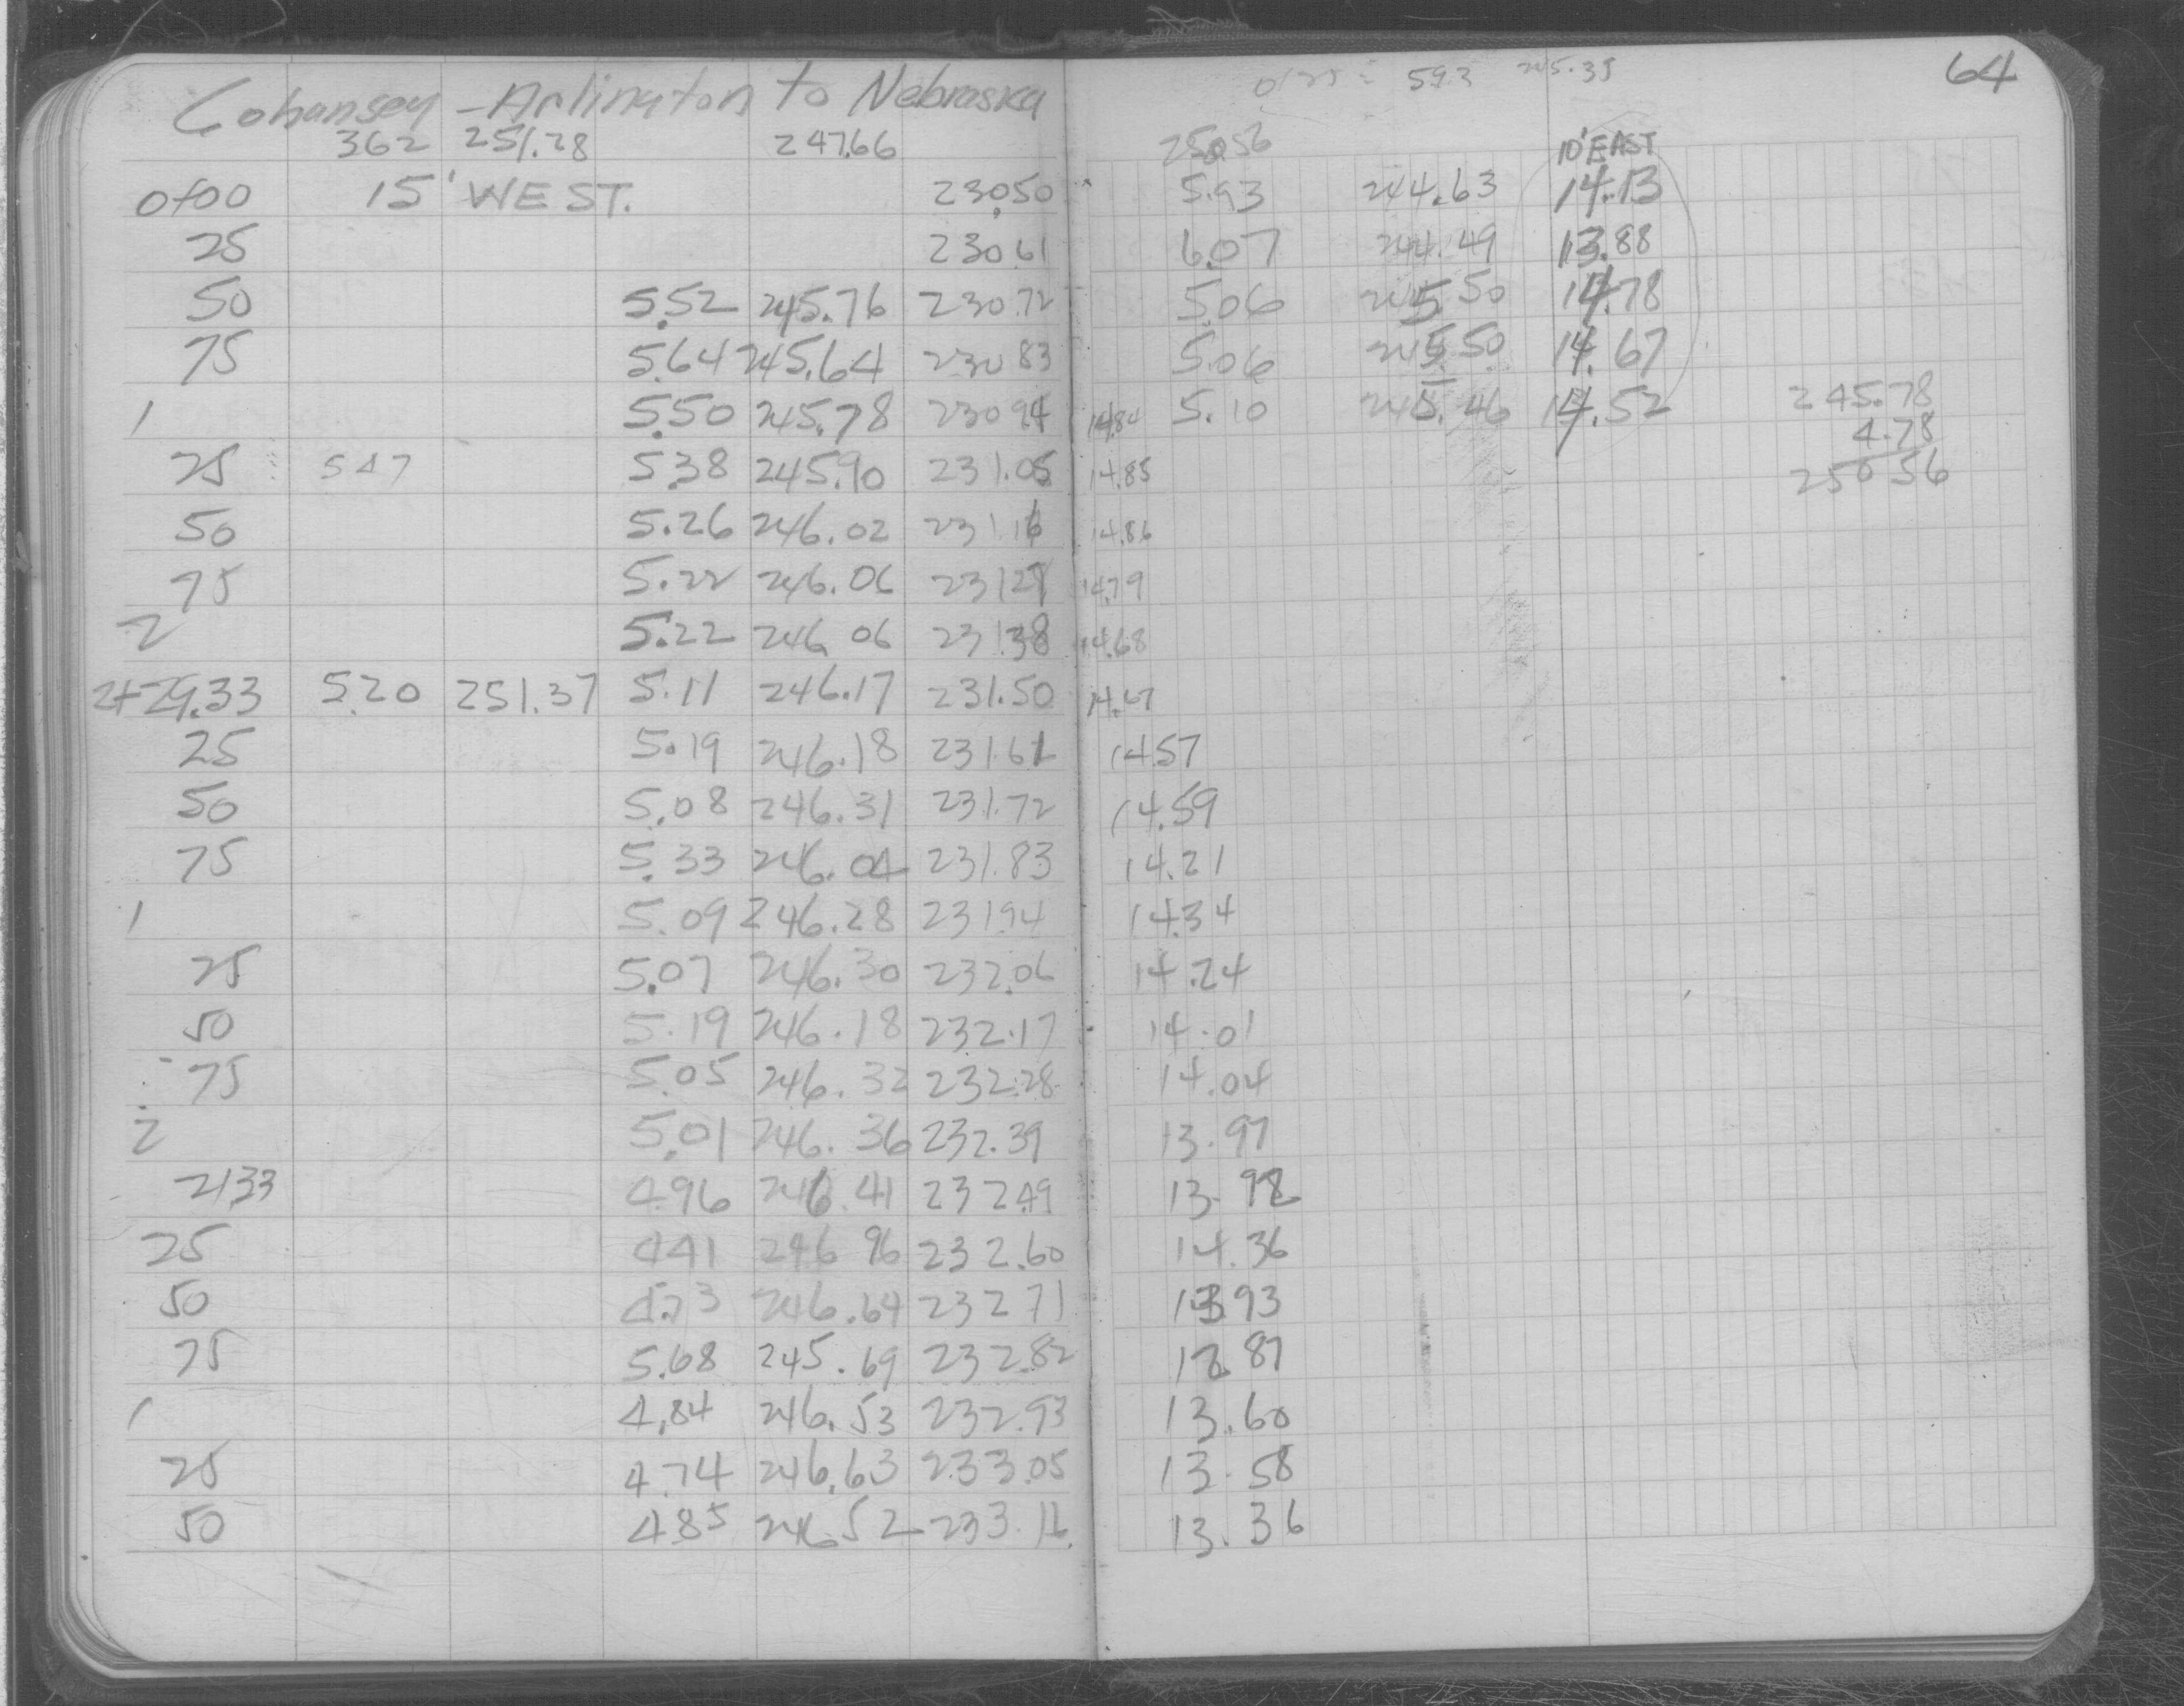 Cohansey - Arlington to Nebraska 64
362 251.28 247.66 250.56 10' EAST
0+00 15' WEST. 230.50 5.93 244.63 14.13
25 230.61 6.07 244.49 13.88
50 5.52 245.76 230.72 5.06 245.50 14.78
75 5.64 245.64 230.83 5.06 245.50 14.67
1 5.50 245.78 230.94 14.84 5.10 245.46 14.52 245.78
4.78
25 547 5.38 245.90 231.05 14.85 250.56
50 5.26 246.02 231.16 14.86
75 5.22 246.06 231.27 14.79
2 5.22 246.06 231.38 14.68
2+29.33 5.20 251.37 5.11 246.17 231.50 14.67
25 5.19 246.18 231.61 14.57
50 5.08 246.31 231.72 14.59
75 5.33 246.04 231.83 14.21
1 5.09 246.28 231.94 14.34
25 5.07 246.30 232.06 14.24
50 5.19 246.18 232.17 14.01
75 5.05 246.32 232.28 14.04
2 5.01 246.36 232.39 13.97
2133 4.96 246.41 232.49 13.92
25 4.41 246.96 232.60 14.36
50 4.73 246.64 232.71 13.93
75 5.68 245.69 232.82 12.87
1 4.84 246.53 232.93 13.60
25 4.74 246.63 233.05 13.58
50 4.85 246.52 233.16 13.36